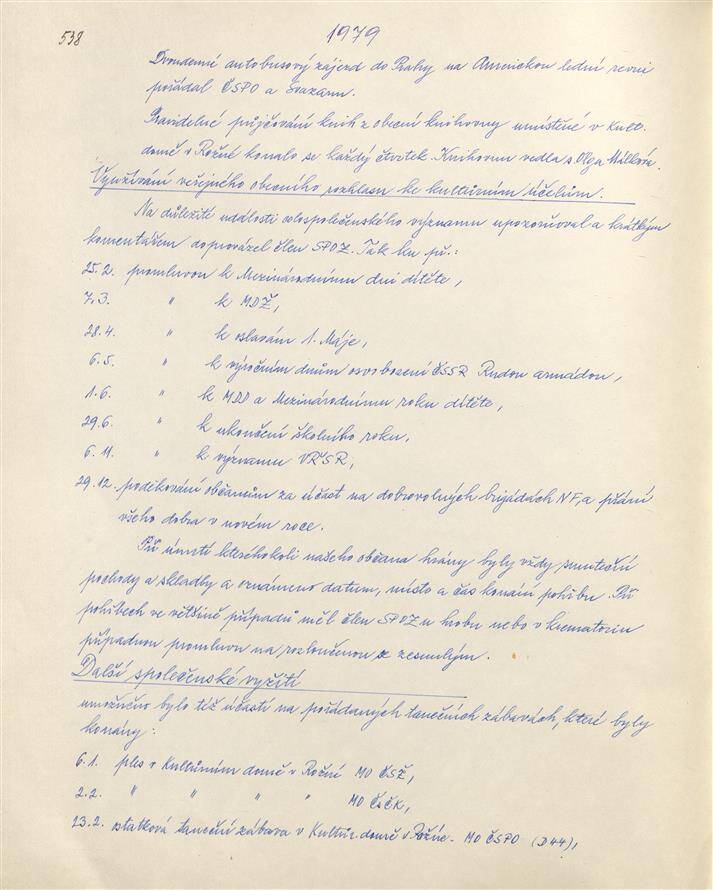 538
1979
Dvoudenné autobusový zájezd do Prahy na Americkou lední revui
pořádal ČSPO a Svazarm.
Pravidelné půjčování knih z obecní knihovny umístěné v Kult.
domě v Rožné konalo se každý čtvrtek. Knihovnu vedla s. Olga Málková.
Využívání veřejného obecního rozhlasu ke kulturním účelům.
Na důležité události celospolečenského významu upozorňoval a krátkým
komentářem doprovázel člen SPOZ. Tak ku př.:
25.2. promluvou k Mezinárodnímu dni dítěte,
7.3. " k MDŽ,
28.4. " k oslavám 1. Máje,
6.5. " k výročním dnům osvobození ČSSR Rudou armádou,
1.6. " k MDD a Mezinárodnímu roku dítěte,
29.6. " k ukončení školního roku,
6.11. " k významu VŘSR,
29.12. poděkování občanům za účast na dobrovolných brigádách NF, a přání
všeho dobra v novém roce.
Při úmrtí kteréhokoli našeho občana hrány byly vždy smuteční
pochody a skladby a oznámeno datum, místo a čas konání pohřbu. Při
pohřbech ve většině případů měl člen SPOZ u hrobu nebo v krematoriu
případnou promluvu na rozloučenou se zesnulým.
Další společenské vyžití
umožněno bylo též účastí na pořádaných tanečních zábavách, které byly
konány:
6.1. ples v Kulturním domě v Rožné MO ČSŽ,
2.2. " " " " MO ČSČK,
23.2. ostatková taneční zábava v Kultur. domě v Rožné - MO ČSPO (D44),